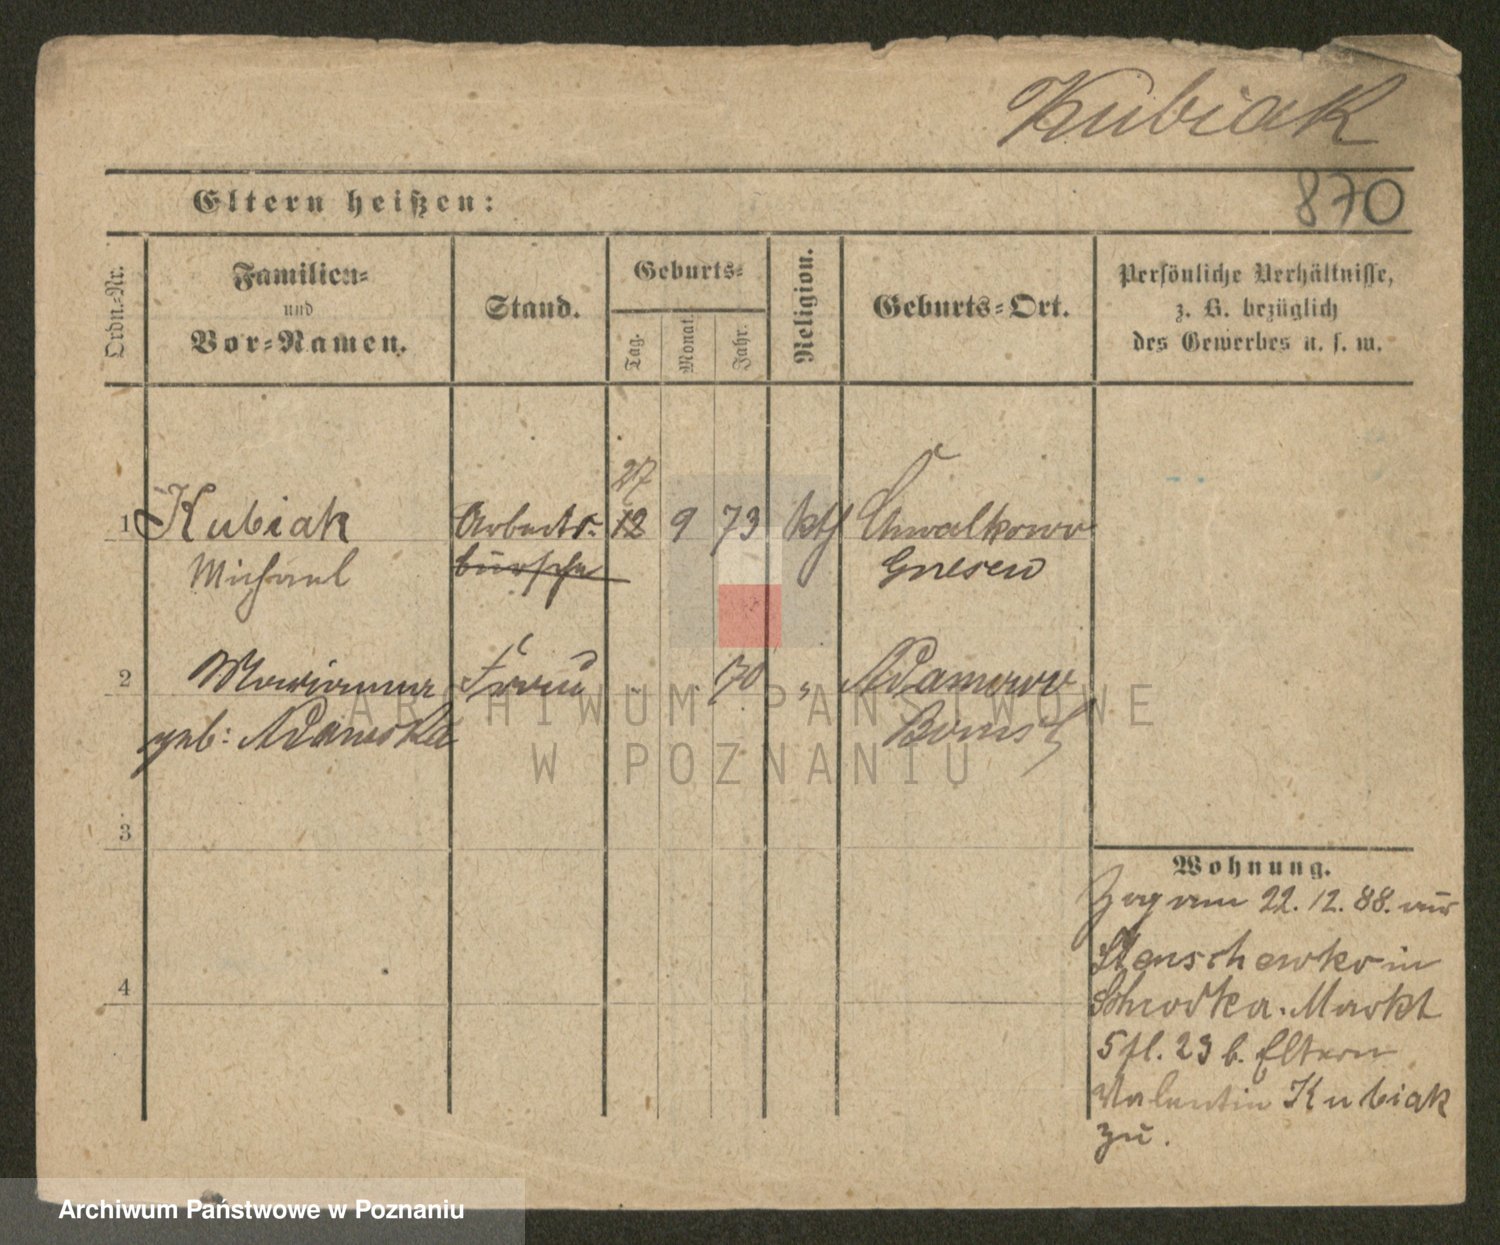 Kubiak
870
Eltern heißen:
Ordn.-Nr.
Familien-
und
Vor-Namen.
Stand.
Geburts-
Tag.
Monat.
Jahr.
Religion.
Geburts-Ort.
Persönliche Verhältnisse,
z. B. bezüglich
des Gewerbes u. s. w.
27
1 Kubiak Arbeits- 12 9 73 kth Chwalkowo
Michael bursche Gnesen
2 Marianna Frau 70 " Adamowo
geb: Adamska Bomst
3
4
Wohnung.
Zog am 22.12.88. aus
in
Schrodka. Markt
5 fl. 23 b. Eltern
Valentin Kubiak
zu.
ARCHIWUM PAŃSTWOWE
W POZNANIU
Archiwum Państwowe w Poznaniu